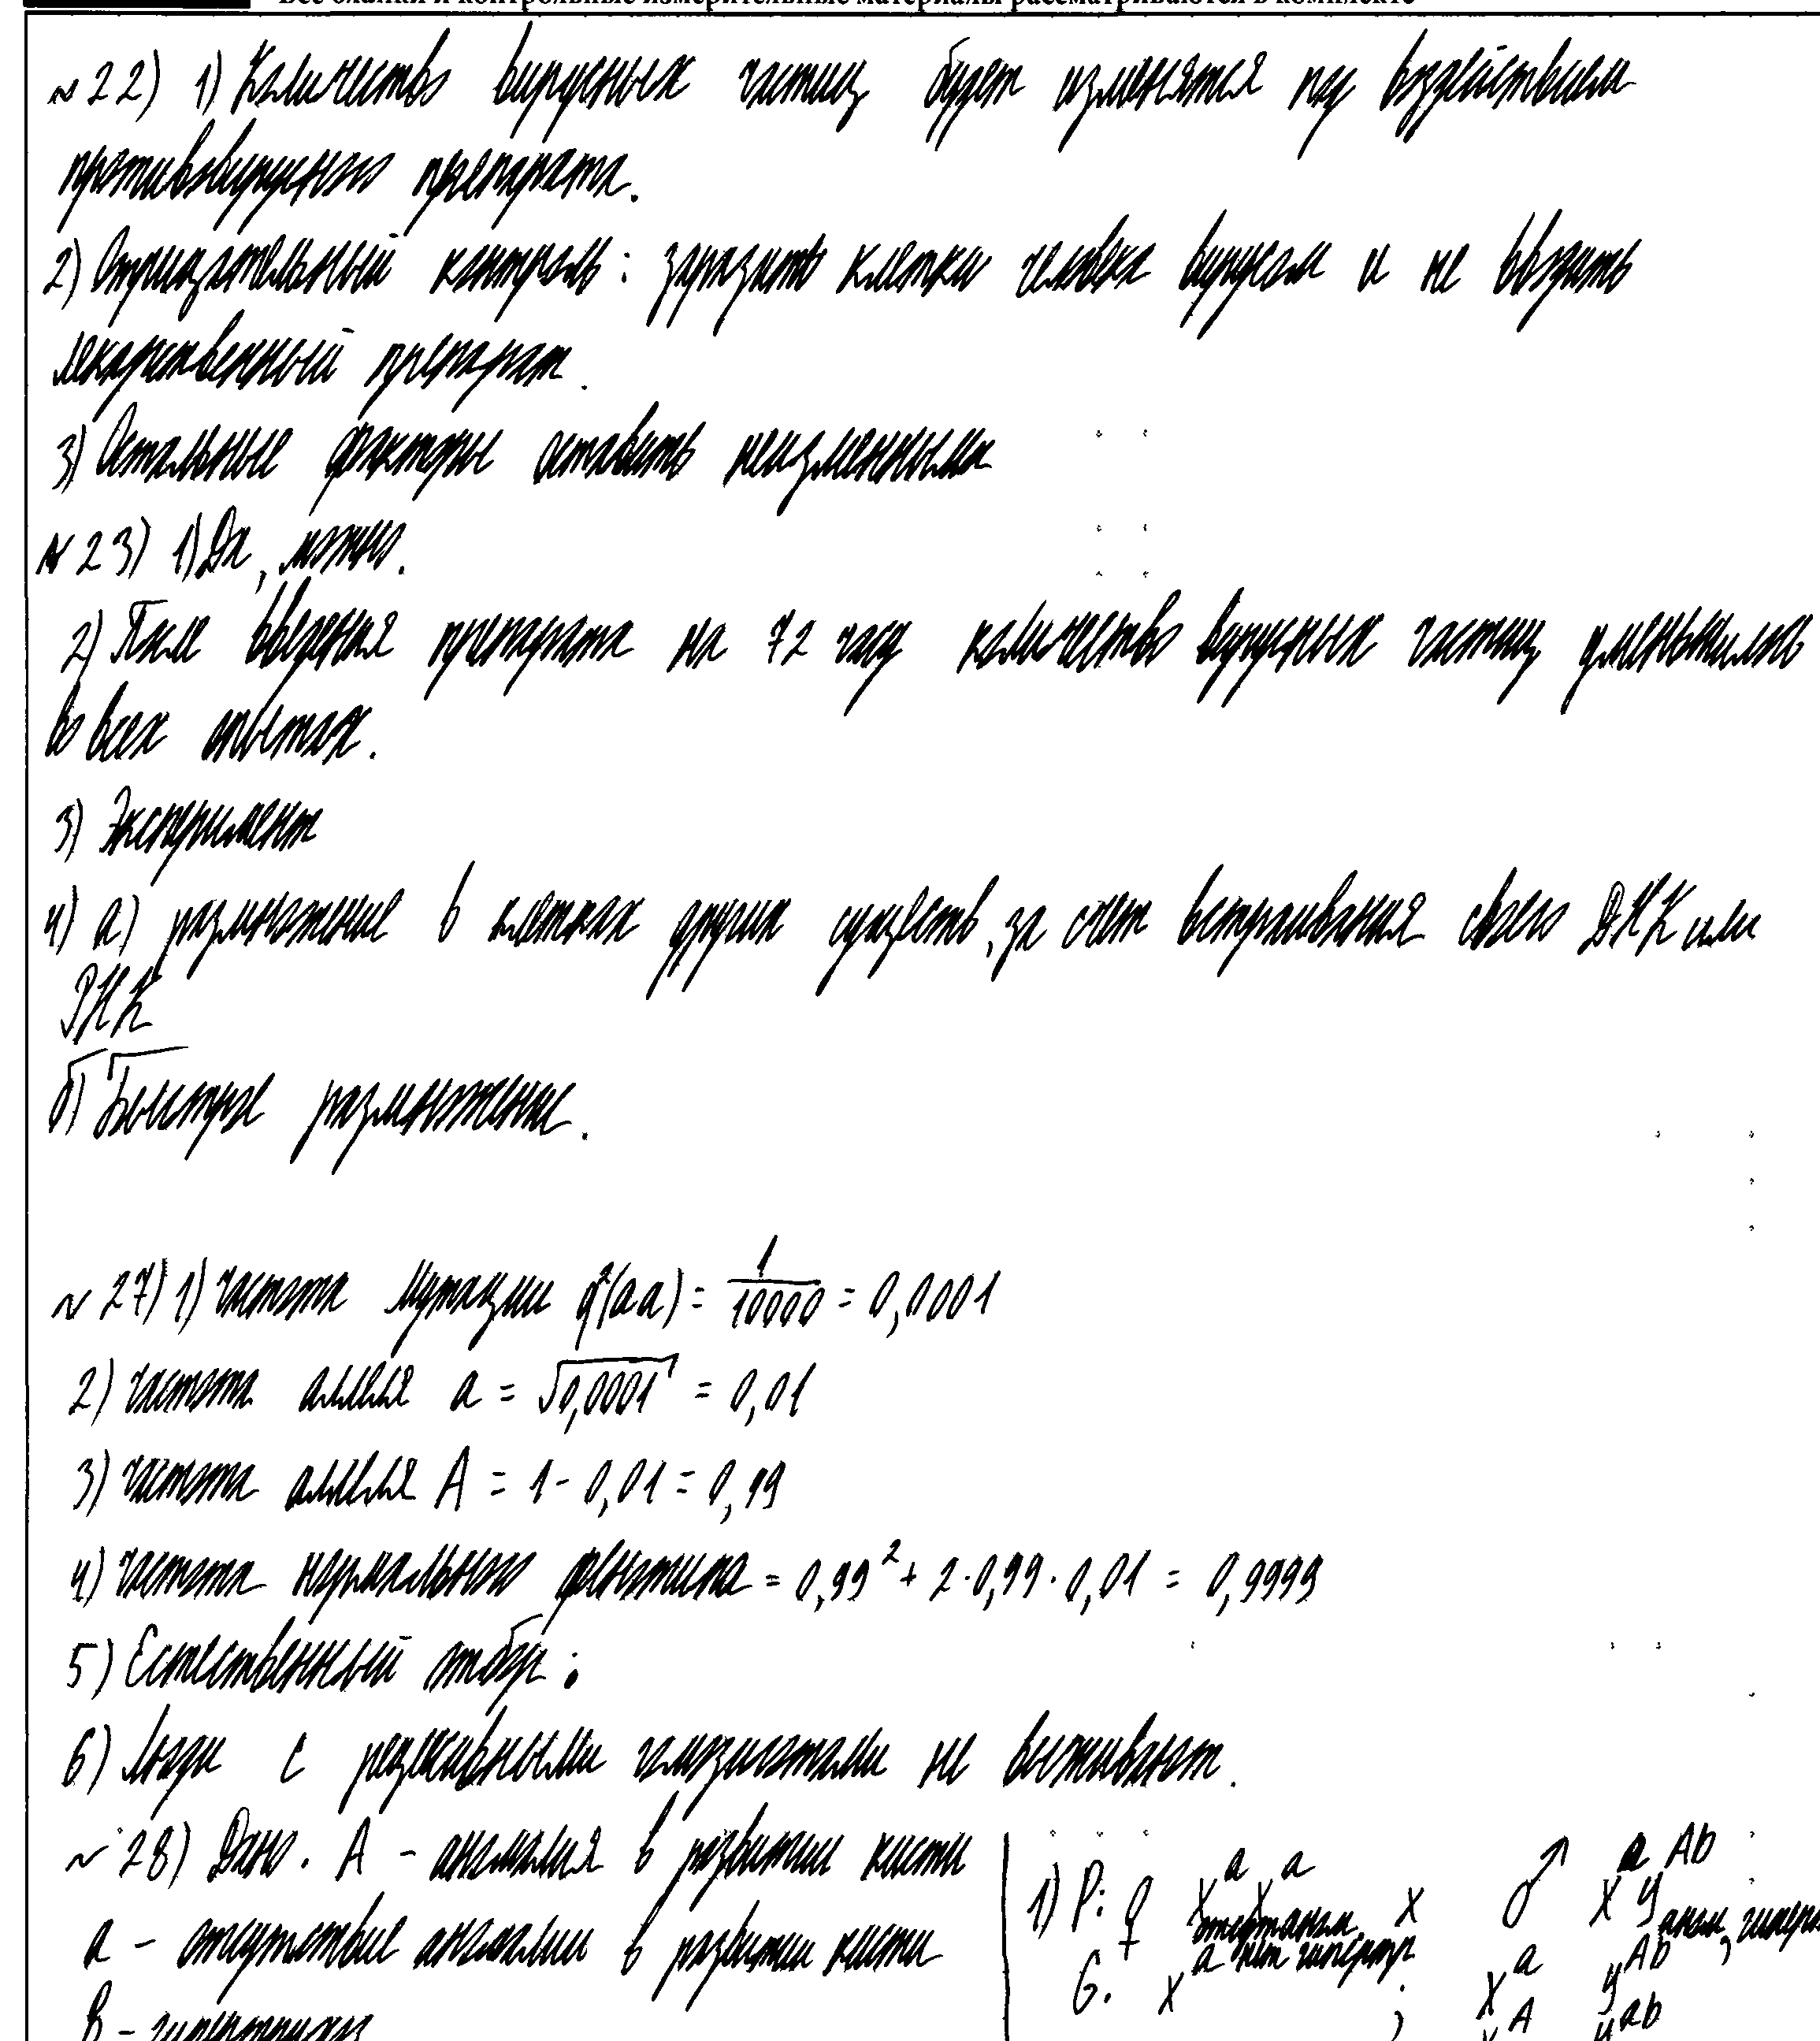 Все бланки и контрольные измерительные материалы рассматриваются в комплекте
№22) 1) Количество вирусных частиц будет изменятся под воздействием
противовирусного препарата.
2) Отрицательный контроль: заразить клетки человека вирусом и не вводить
лекарственный препарат.
3) Остальные факторы оставить неизменными
№23) 1) Да, можно.
2) После введения препарата на 72 часу количество вирусных частиц уменьшилось
во всех опытах.
3) Эксперимент
4) а) размножение в клетках других существ, за счет встраивания своего ДНК или
РНК
б) Быстрое размножение.
№27) 1) частота мутации q²(aa) = 1/10000 = 0,0001
2) частота аллеля a = √0,0001 = 0,01
3) частота аллеля A = 1 - 0,01 = 0,99
4) частота нормального фенотипа = 0,99² + 2·0,99·0,01 = 0,9999
5) Естественный отбор.
6) Люди с рецессивными гомозиготами не выживают.
№28) Дано. A - аномалия в развитии кисти
a - отсутствие аномалии в развитии кисти
B - гипертрихоз
1) P: ♀ XᵃXᵃ x ♂ XᵃYᴬᵇ
отсут аном, нет гипертр аном, гиперт
G. Xᵃ ; Xᵃ Yᴬᵇ
, Xᴬ Yᵃᵇ